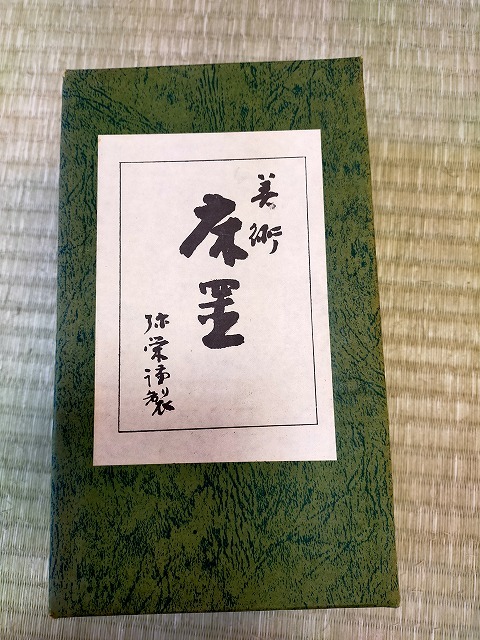 美術
床墨
弥栄謹製